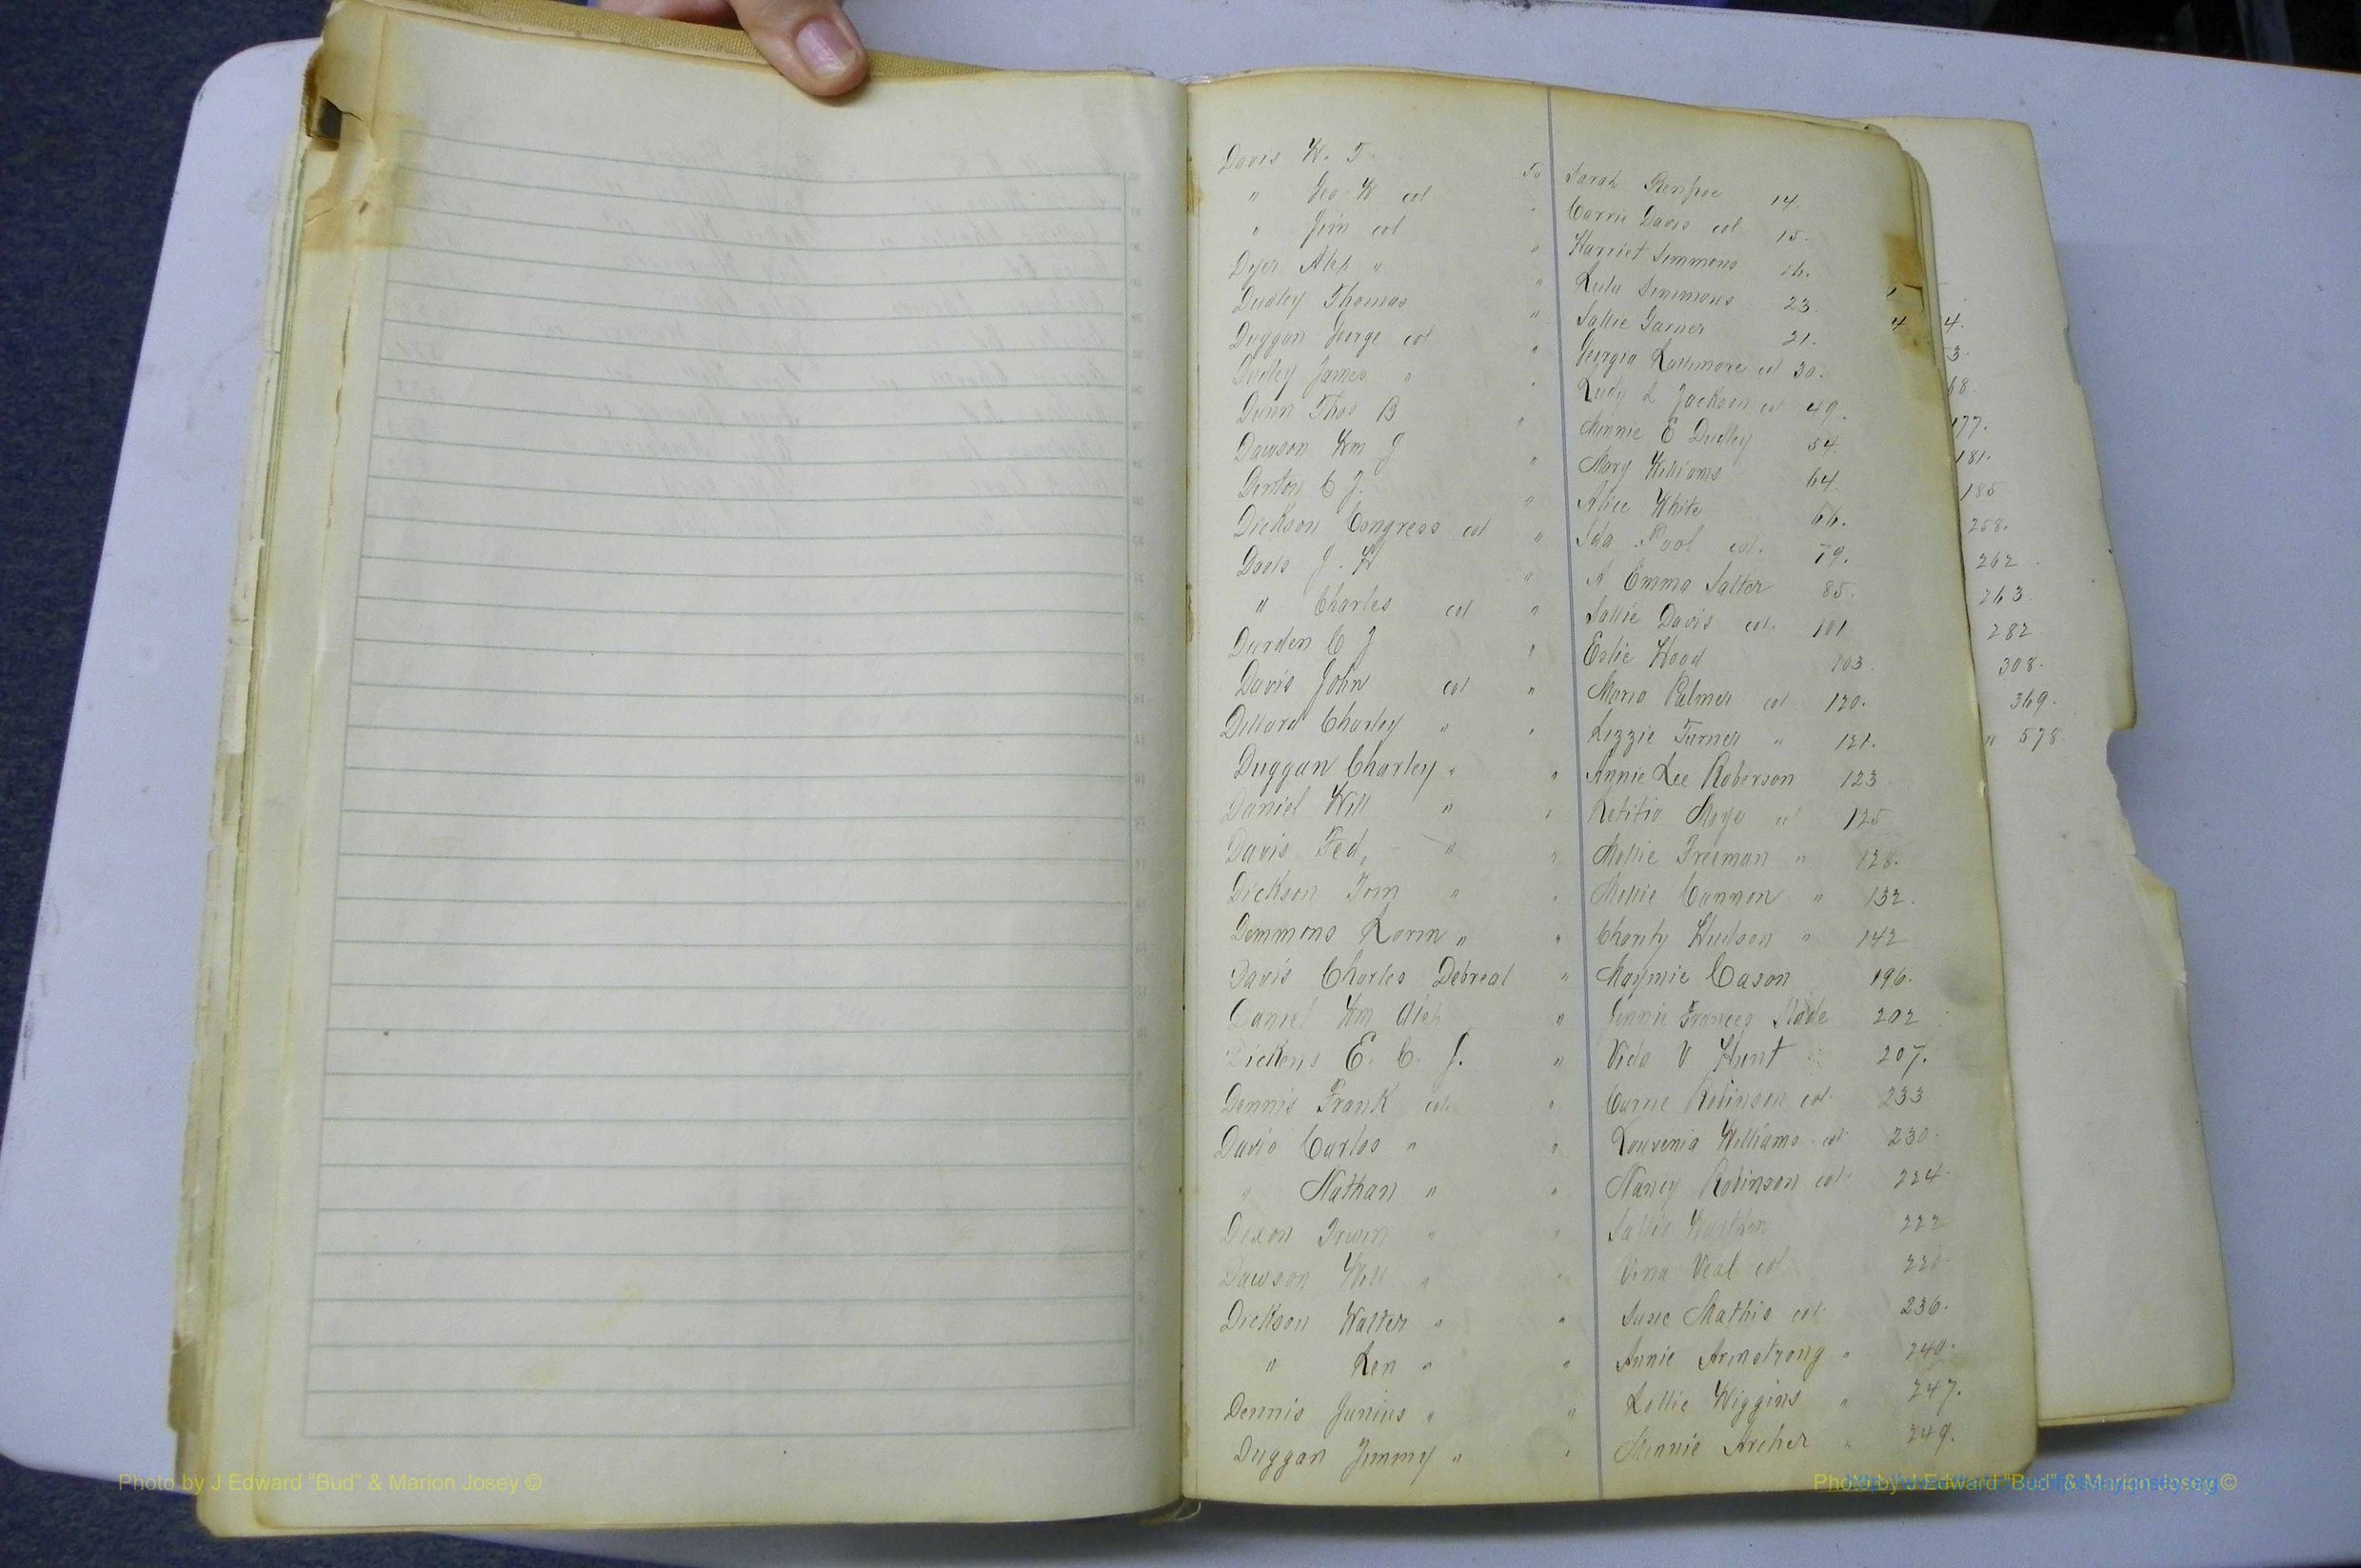 Davis W. T. To Sarah Renfroe 14.
" Geo W col " Carrie Davis col 15.
" Jim col " Harriet Simmons 16.
Dyer Alex " " Lula Simmons 23
Dudley Thomas " Sallie Garner 21.
Duggan George col " Georgia Lattimore col 30.
Dudley James " " Lucy L Jackson col 49.
Dunn Thos B " Minnie E Dudley 54.
Dawson Wm J " Mary Williams 64.
Denton C J. " Alice White 66.
Dickson Congress col " Ida Pool col. 79.
Davis J. H " A Emma Salter 85.
" Charles col " Sallie Davis col. 101
Durden C J " Eslie Wood 103.
Davis John col " Maria Palmer col 120.
Dillard Charley " " Lizzie Turner " 121.
Duggan Charley " " Annie Lee Roberson 123
Daniel Will " " Letitia Moye col 125
Davis Fed, " " Mollie Freeman " 128.
Dickson Tom " " Mollie Cannon " 132.
Demmons Lorin " " Charity Hudson " 142
Davis Charles Debreal " Maymie Cason 196.
Daniel Wm Alex " Jennie Frances Slade 202
Dickens E. C. J. " Vida V Hunt 207.
Dennis Frank col. " Carrie Robinson col. 233
Davis Carlos " " Louvenia Williams col 230.
" Nathan " " Nancy Robinson col. 224.
Dixon Irwin " " Sallie 222
Dawson Will " " Vina Veal col 220.
Dickson Walter " " Susie Mathis col. 236.
" Len " " Annie Armstrong " 240.
Dennis Junius " " Lollie Wiggins " 247.
Duggan Jimmy " " Minnie Archer " 249.
4.
3.
68.
177.
181.
185
258.
262
263
282
308.
369.
" 578
Photo by J Edward "Bud" & Marion Josey ©
Photo by J Edward "Bud" & Marion Josey ©